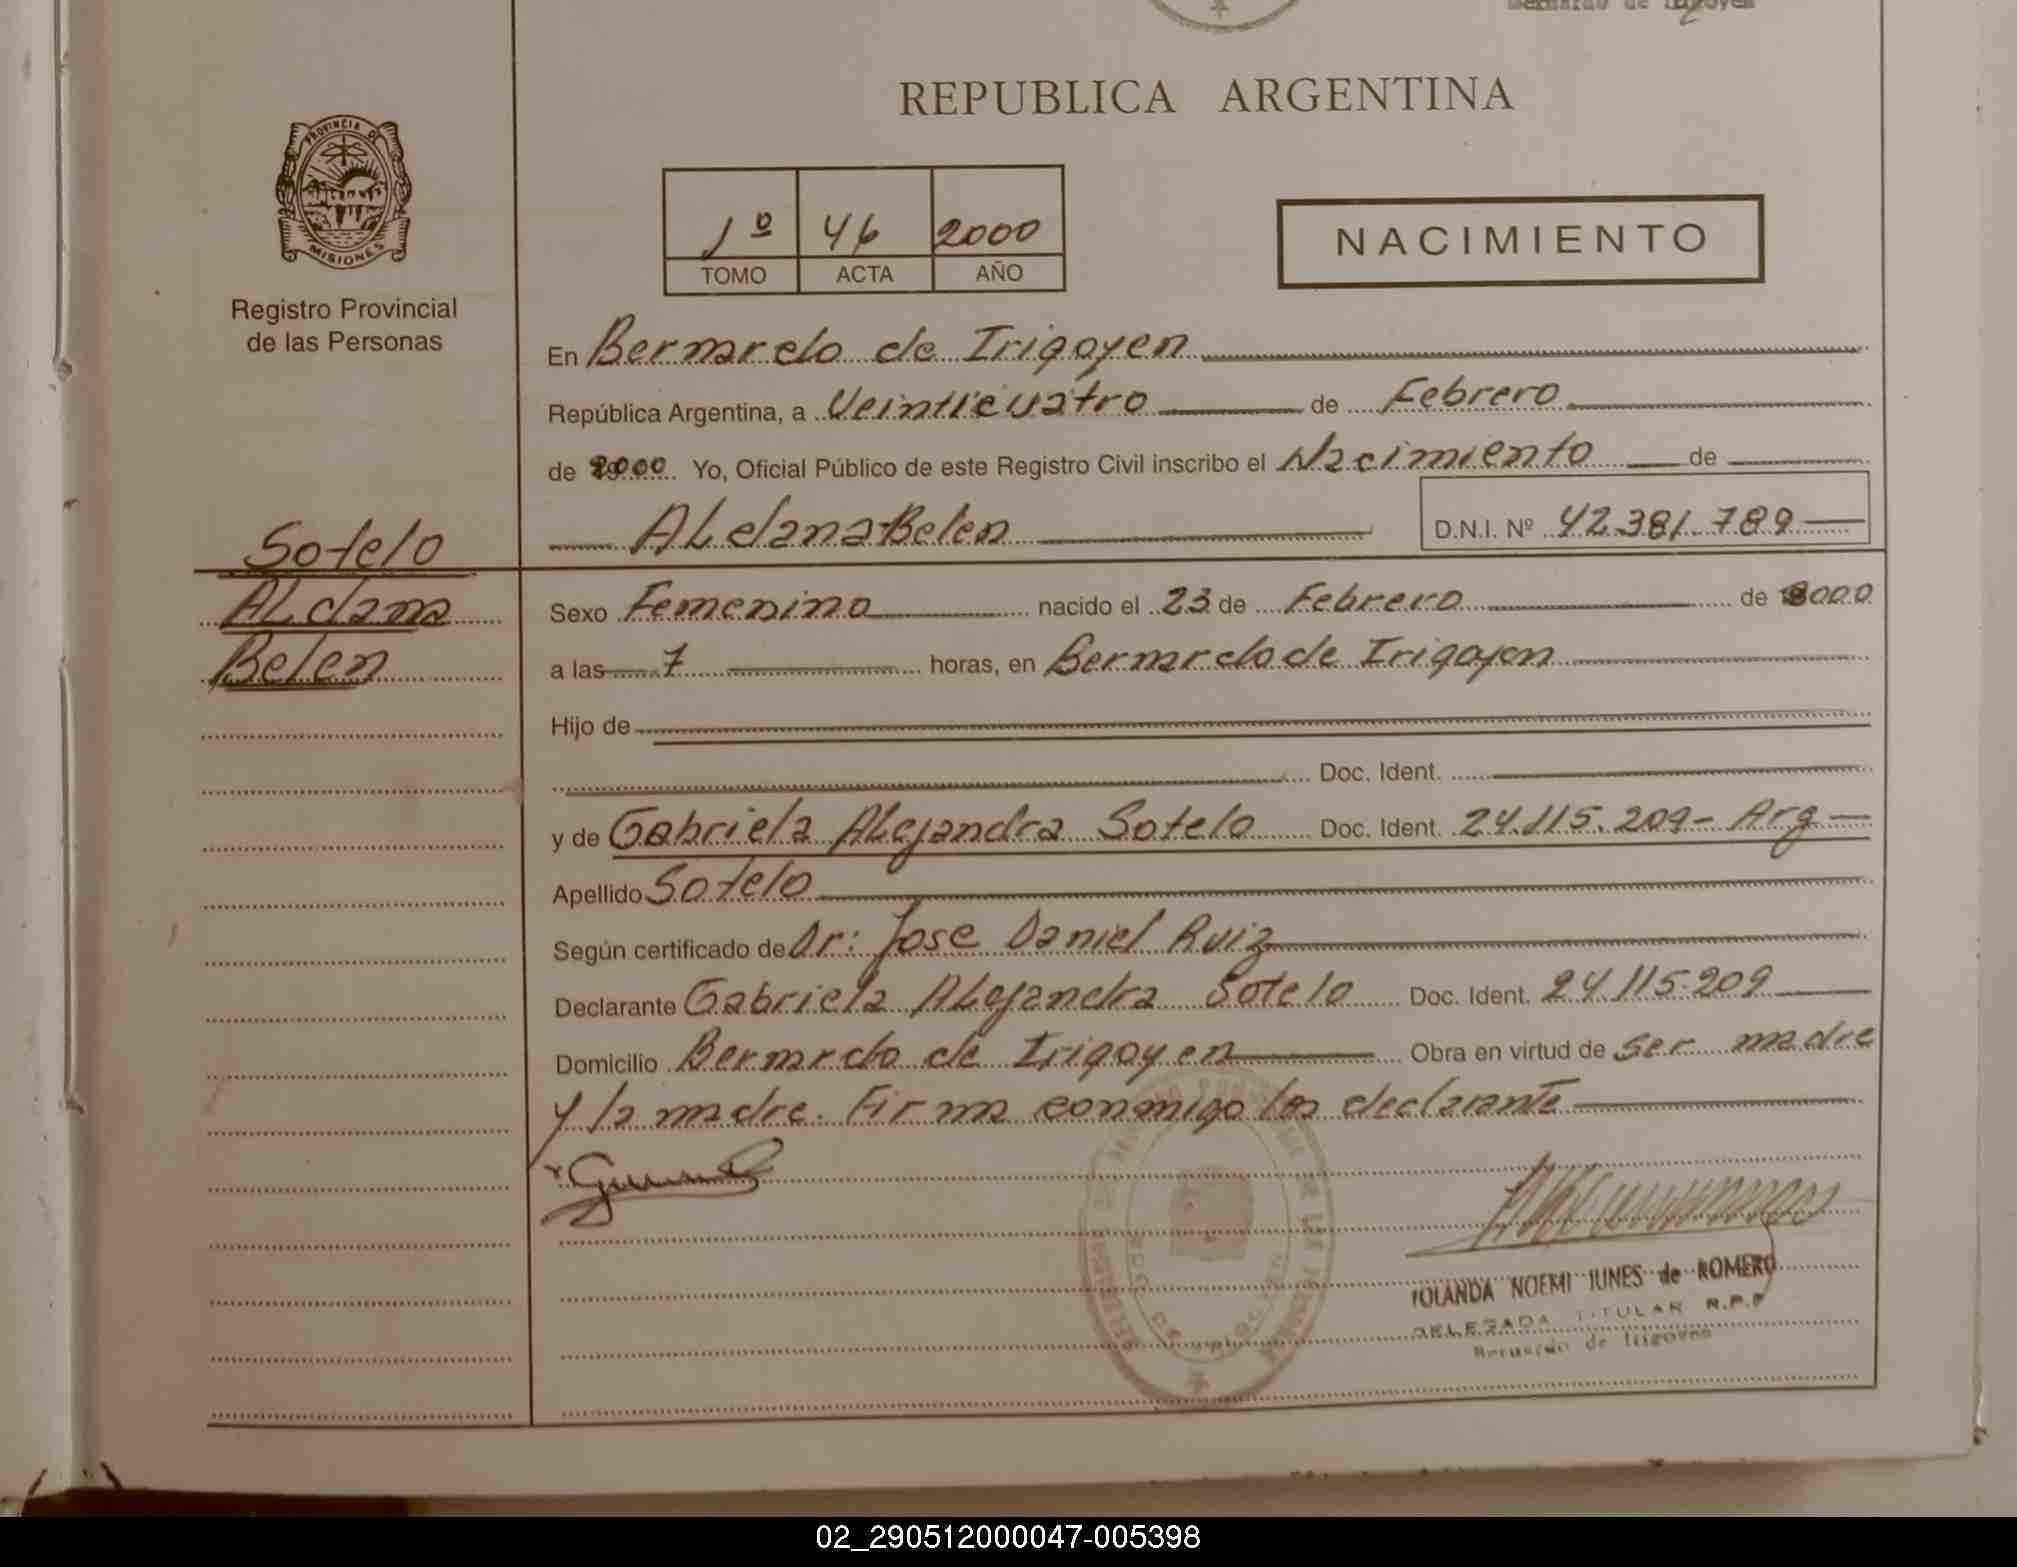 Bernardo de Irigoyen
REPUBLICA ARGENTINA
PROVINCIA DE
MISIONES
Registro Provincial
de las Personas
1º 46 2000
TOMO ACTA AÑO
NACIMIENTO
En Bernardo de Irigoyen
República Argentina, a Veinticuatro de Febrero
de 2000 Yo, Oficial Público de este Registro Civil inscribo el Nacimiento de
ALdana Belen D.N.I. Nº 42.381.789
Sotelo
ALdana
Belen
Sexo Femenino nacido el 23 de Febrero de 2000
a las 7 horas, en Bernardo de Irigoyen
Hijo de
Doc. Ident.
y de Gabriela ALejandra Sotelo Doc. Ident. 24.115.209- Arg
Apellido Sotelo
Según certificado de Dr: Jose Daniel Ruiz
Declarante Gabriela ALejandra Sotelo Doc. Ident. 24.115.209
Domicilio Bernardo de Irigoyen Obra en virtud de ser madre
y la madre. Firma conmigo la declarante
IOLANDA NOEMI IUNES de ROMERO
DELEGADA TITULAR R.P.P
Bernardo de Irigoyen
02_290512000047-005398